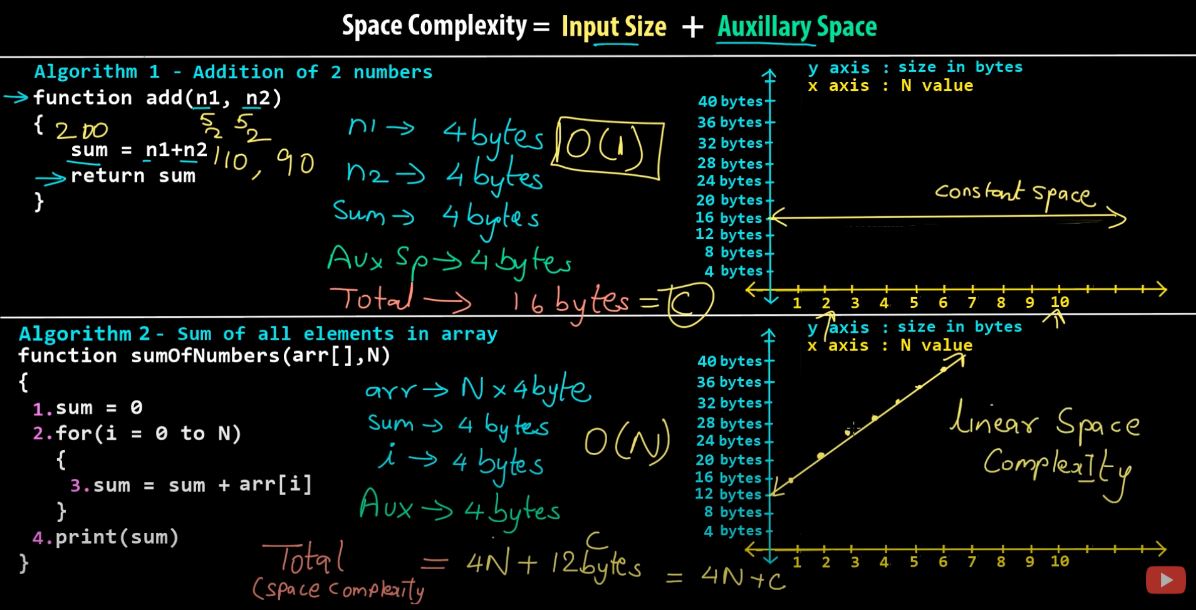 Space Complexity = Input Size + Auxillary Space
Algorithm 1 - Addition of 2 numbers
function add(n1, n2)
{ 200 5 5
2 2
sum = n1+n2 110, 90
return sum
}
n1 → 4 bytes
n2 → 4 bytes
Sum → 4 bytes
Aux Sp → 4 bytes
Total → 16 bytes = C
O(1)
y axis : size in bytes
x axis : N value
40 bytes
36 bytes
32 bytes
28 bytes
24 bytes
20 bytes
16 bytes
12 bytes
8 bytes
4 bytes
constant space
1 2 3 4 5 6 7 8 9 10
Algorithm 2 - Sum of all elements in array
function sumOfNumbers(arr[],N)
{
1.sum = 0
2.for(i = 0 to N)
{
3.sum = sum + arr[i]
}
4.print(sum)
}
arr → N x 4byte
Sum → 4 bytes
i → 4 bytes
Aux → 4 bytes
O(N)
C
Total = 4N + 12bytes = 4N+C
(space complexity
y axis : size in bytes
x axis : N value
40 bytes
36 bytes
32 bytes
28 bytes
24 bytes
20 bytes
16 bytes
12 bytes
8 bytes
4 bytes
Linear Space
ComplexIty
1 2 3 4 5 6 7 8 9 10